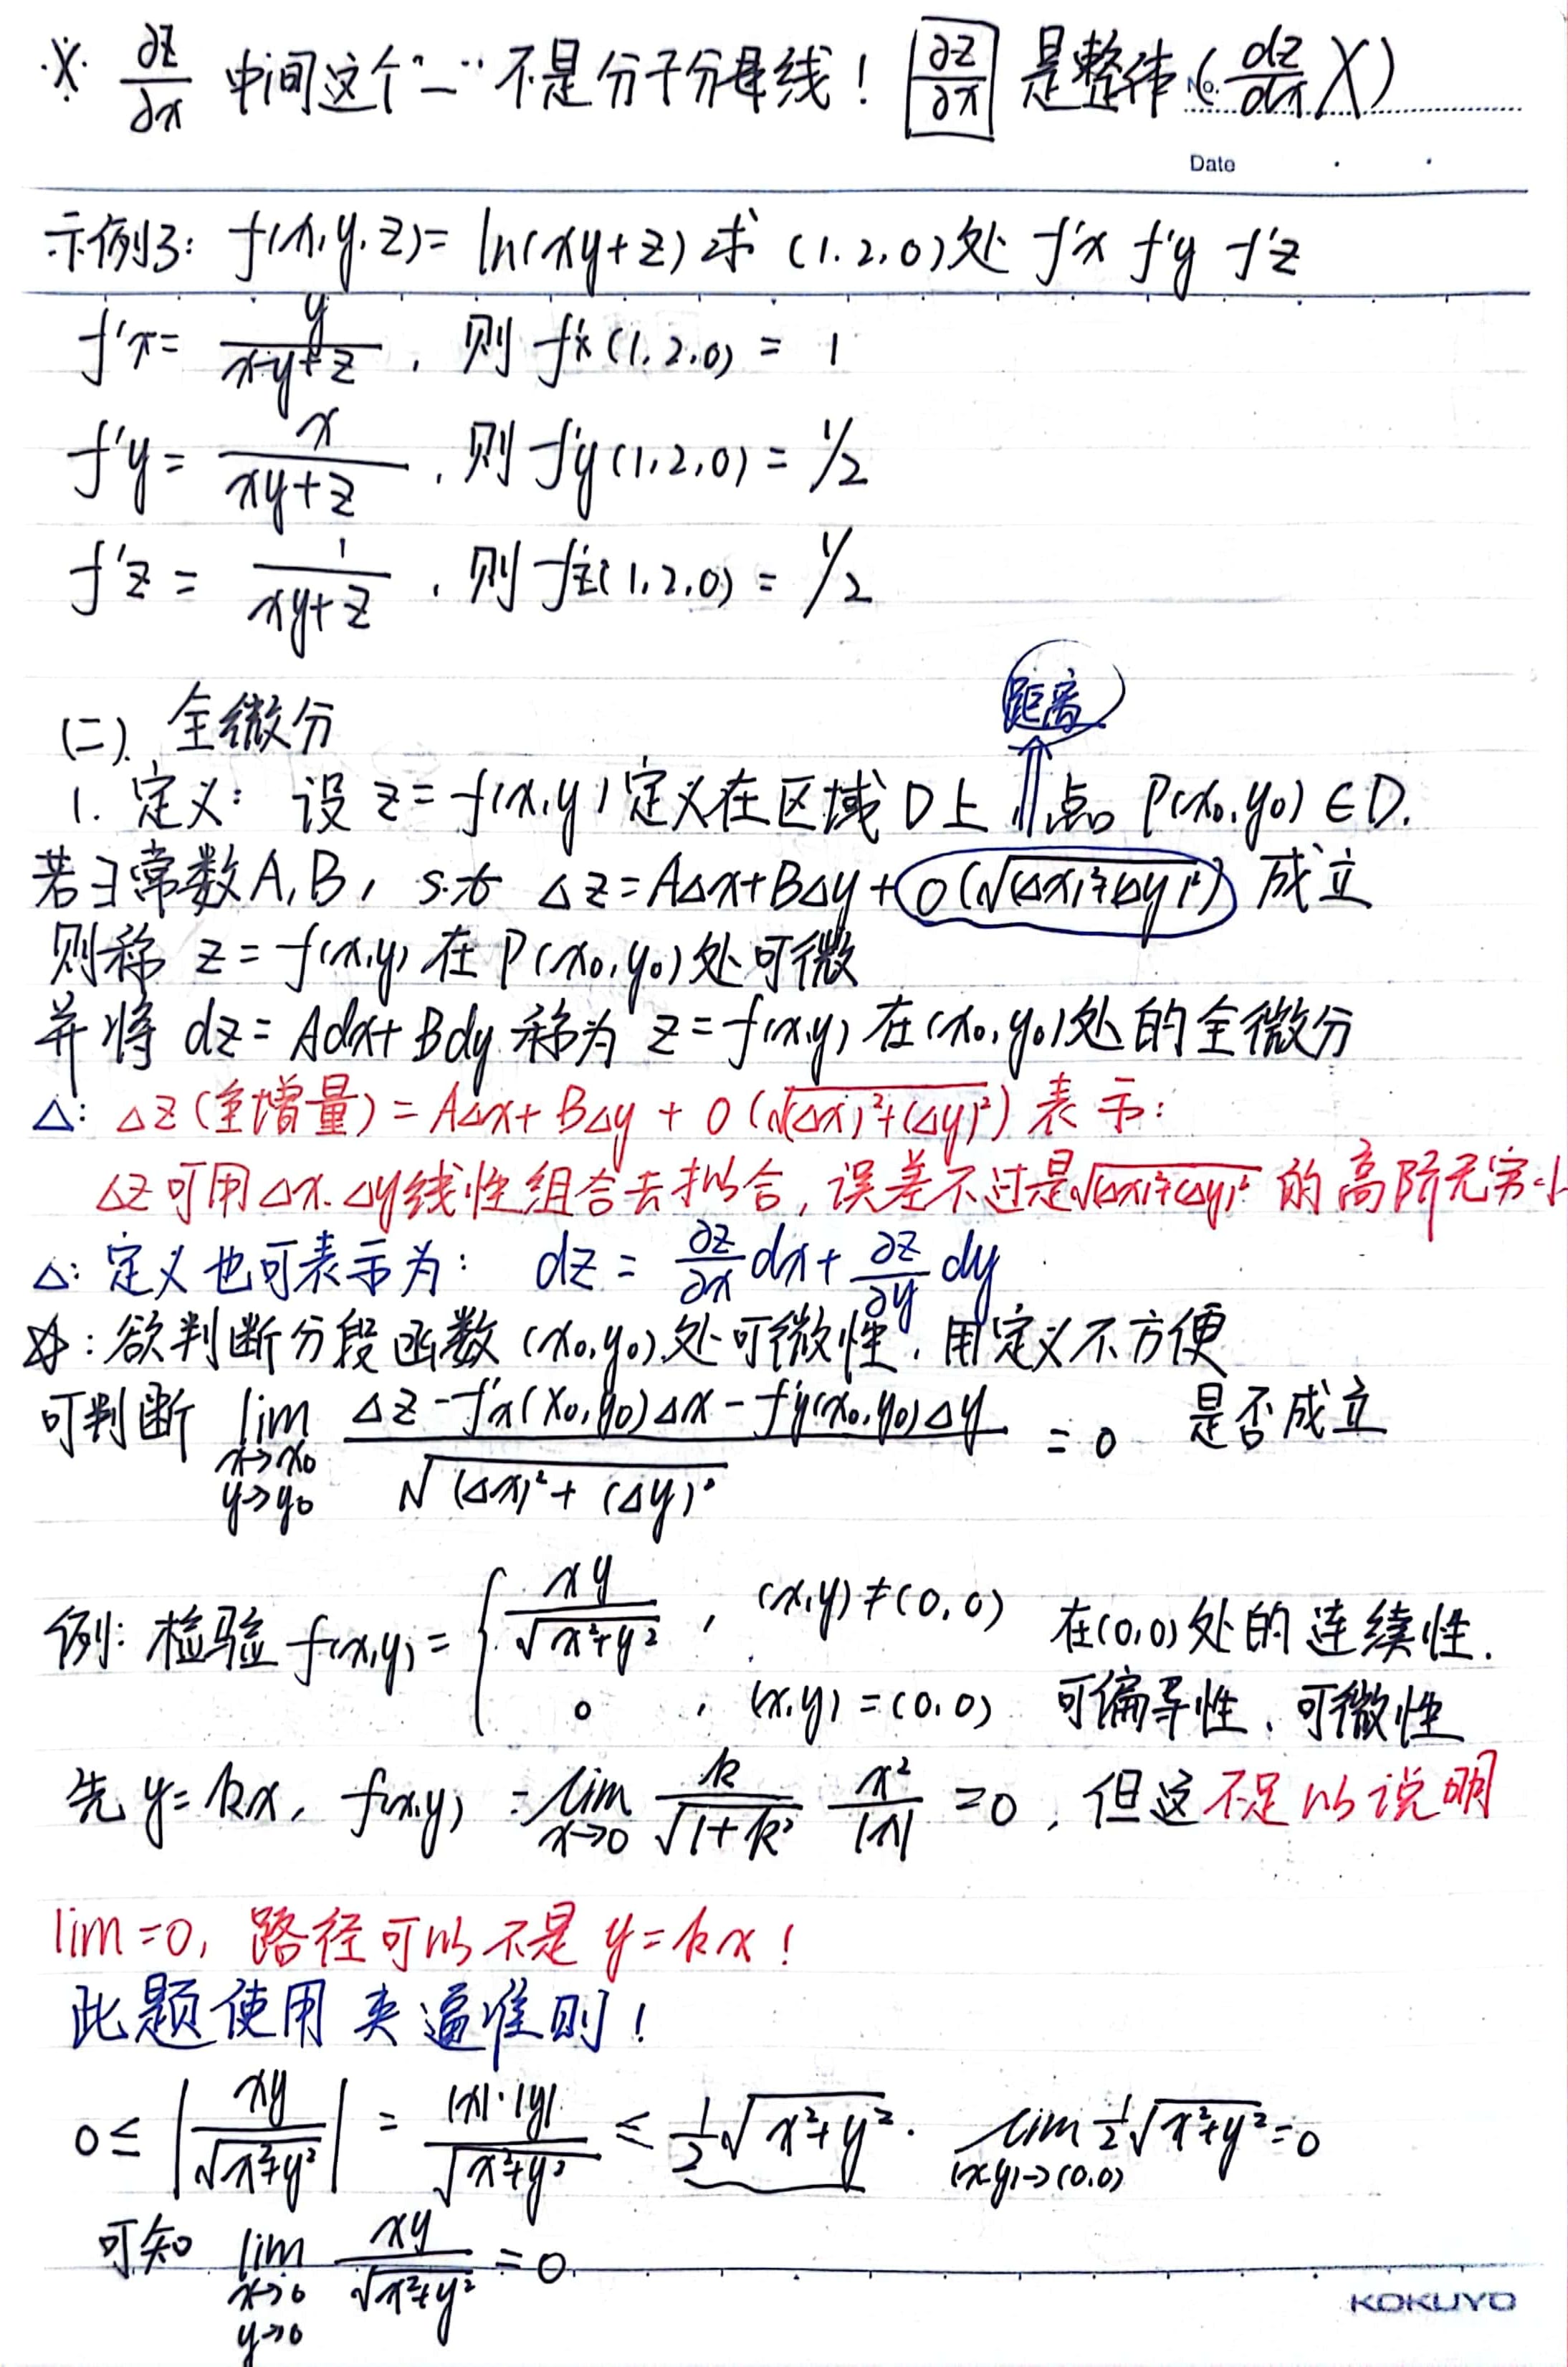 ※ ∂z/∂x 中间这个"—"不是分子分母线! ∂z/∂x 是整体 (dz/dx X)
No.
Date
示例3: f(x,y,z)= ln(xy+z) 求 (1,2,0)处 f'x f'y f'z
f'x= y/(xy+z), 则 f'x(1,2,0) = 1
f'y= x/(xy+z), 则 f'y(1,2,0) = 1/2
f'z = 1/(xy+z), 则 f'z(1,2,0) = 1/2
距离
(二). 全微分
1. 定义: 设 z=f(x,y)定义在区域D上 ⇑点 P(x₀,y₀)∈D.
若∃常数A,B, s.t. Δz=AΔx+BΔy+o(√((Δx)²+(Δy)²)) 成立
则称 z=f(x,y) 在 P(x₀,y₀)处可微
并将 dz= Adx+Bdy 称为 z=f(x,y) 在(x₀,y₀)处的全微分
△: Δz(全增量)=AΔx+BΔy+o(√((Δx)²+(Δy)²)) 表示:
Δz可用Δx.Δy线性组合去拟合,误差不过是√((Δx)²+(Δy)²) 的高阶无穷小
△: 定义也可表示为: dz = ∂z/∂x dx+ ∂z/∂y dy
☆: 欲判断分段函数 (x₀,y₀)处可微性,用定义不方便
可判断 lim x→x₀ y→y₀ (Δz-f'x(x₀,y₀)Δx-f'y(x₀,y₀)Δy)/√((Δx)²+(Δy)²) =0 是否成立
例: 检验 f(x,y)={ xy/√(x²+y²), (x,y)≠(0,0) 在(0,0)处的连续性.
0, (x,y)=(0,0) 可偏导性、可微性
先 y=kx, f(x,y) =lim x→0 k/√(1+k²) x²/|x| =0, 但这不足以说明
lim=0, 路径可以不是 y=kx!
此题使用夹逼准则!
0≤|xy/√(x²+y²)| = |x|·|y|/√(x²+y²) ≤ 1/2√(x²+y²). lim (x,y)→(0,0) 1/2√(x²+y²)=0
可知 lim x→0 y→0 xy/√(x²+y²) =0
KOKUYO